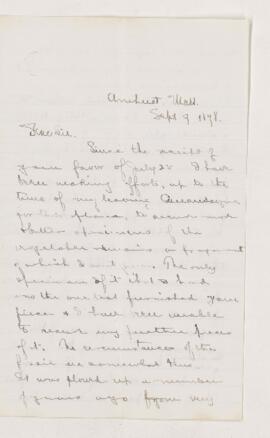 Amherst, Mass.
Sept 9 1878.
Dear sir.
Since the receipt of
your favor of July 22 I have
been making efforts, up to the
time of my leaving
for this place, to secure more
& better specimens of the
vegetable remains a fragment
of which I sent you. The only
specimen of it that I had
was the one that furnished your
piece & I have been unable
to secure any further pieces
of it. The circumstances of the
fossil are somewhat thus.
It was plowed up a number
of years ago from very